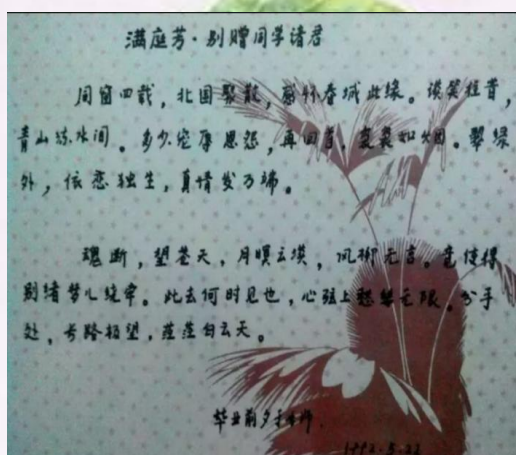 满庭芳·别赠同学诸君
同窗四载，北国聚散，感怀春城此缘。谈笑往昔，
青山绿水间。多少恩怨，再回首，变裂如烟。翠绿
外，依恋独生，真情发乃端。
魂断，望苍天，月暝云淡，风柳无言。竟使得
别绪梦儿绕牵。此去何时见也，心弦上愁无限。分手
处，长路极望，茫茫白云天。
毕业前夕于
1992.5.22